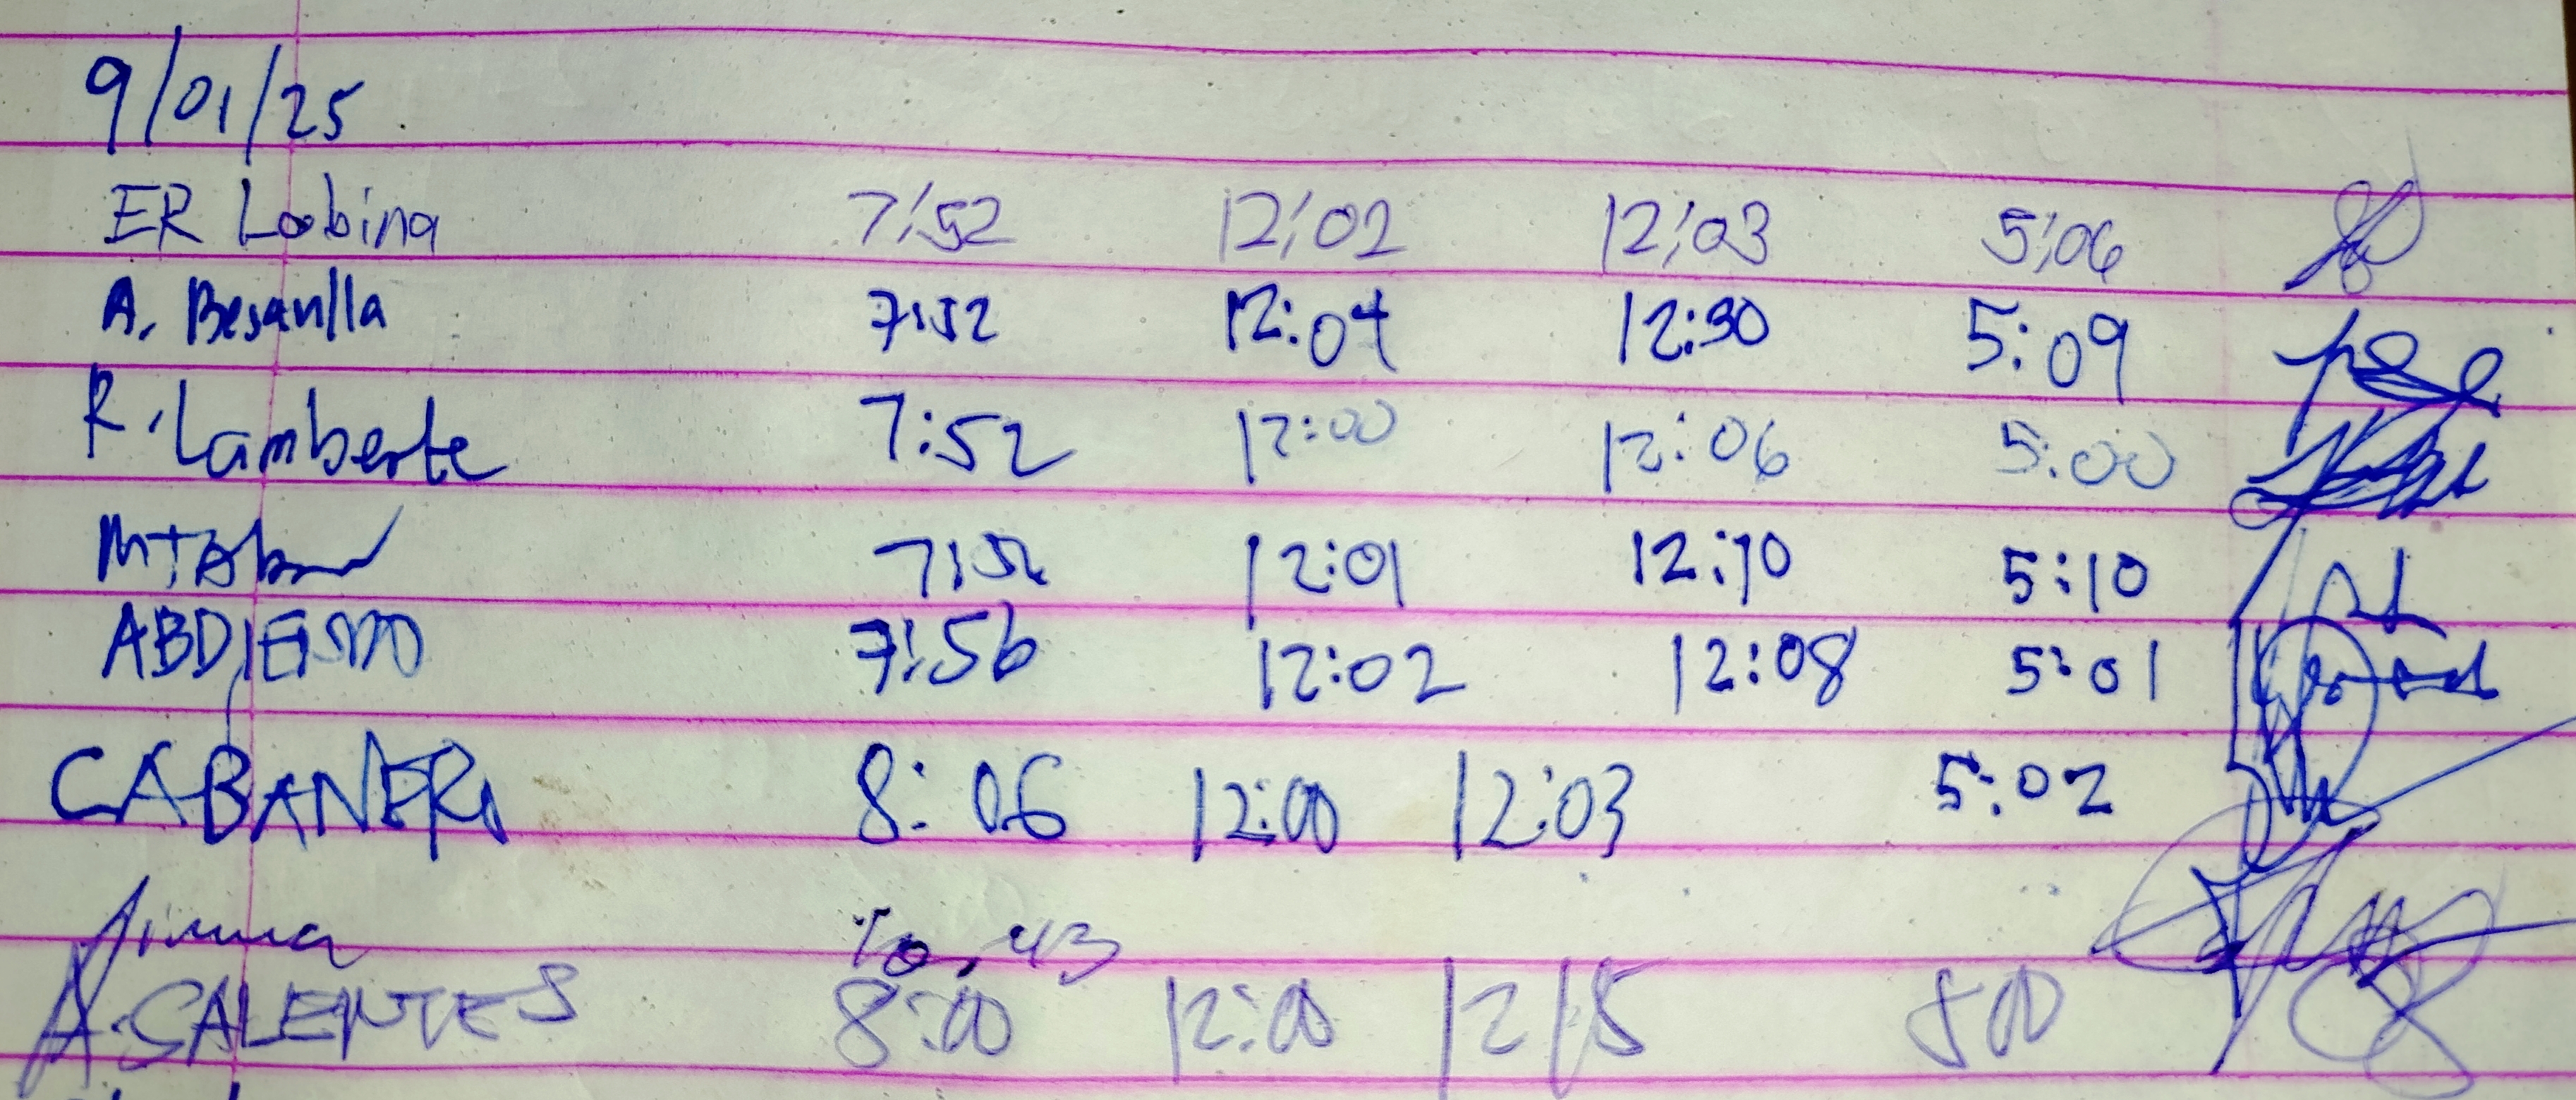 9/01/25
ER Lobina 7:52 12:02 12:03 5:06
A. Besanlla 7:52 12:04 12:30 5:09
R. Lamberte 7:52 12:00 12:06 5:00
7:52 12:01 12:10 5:10
7:56 12:02 12:08 5:01
CABANERO 8:06 12:00 12:03 5:02
A. CALENTES 8:00 12:00 12 15 500